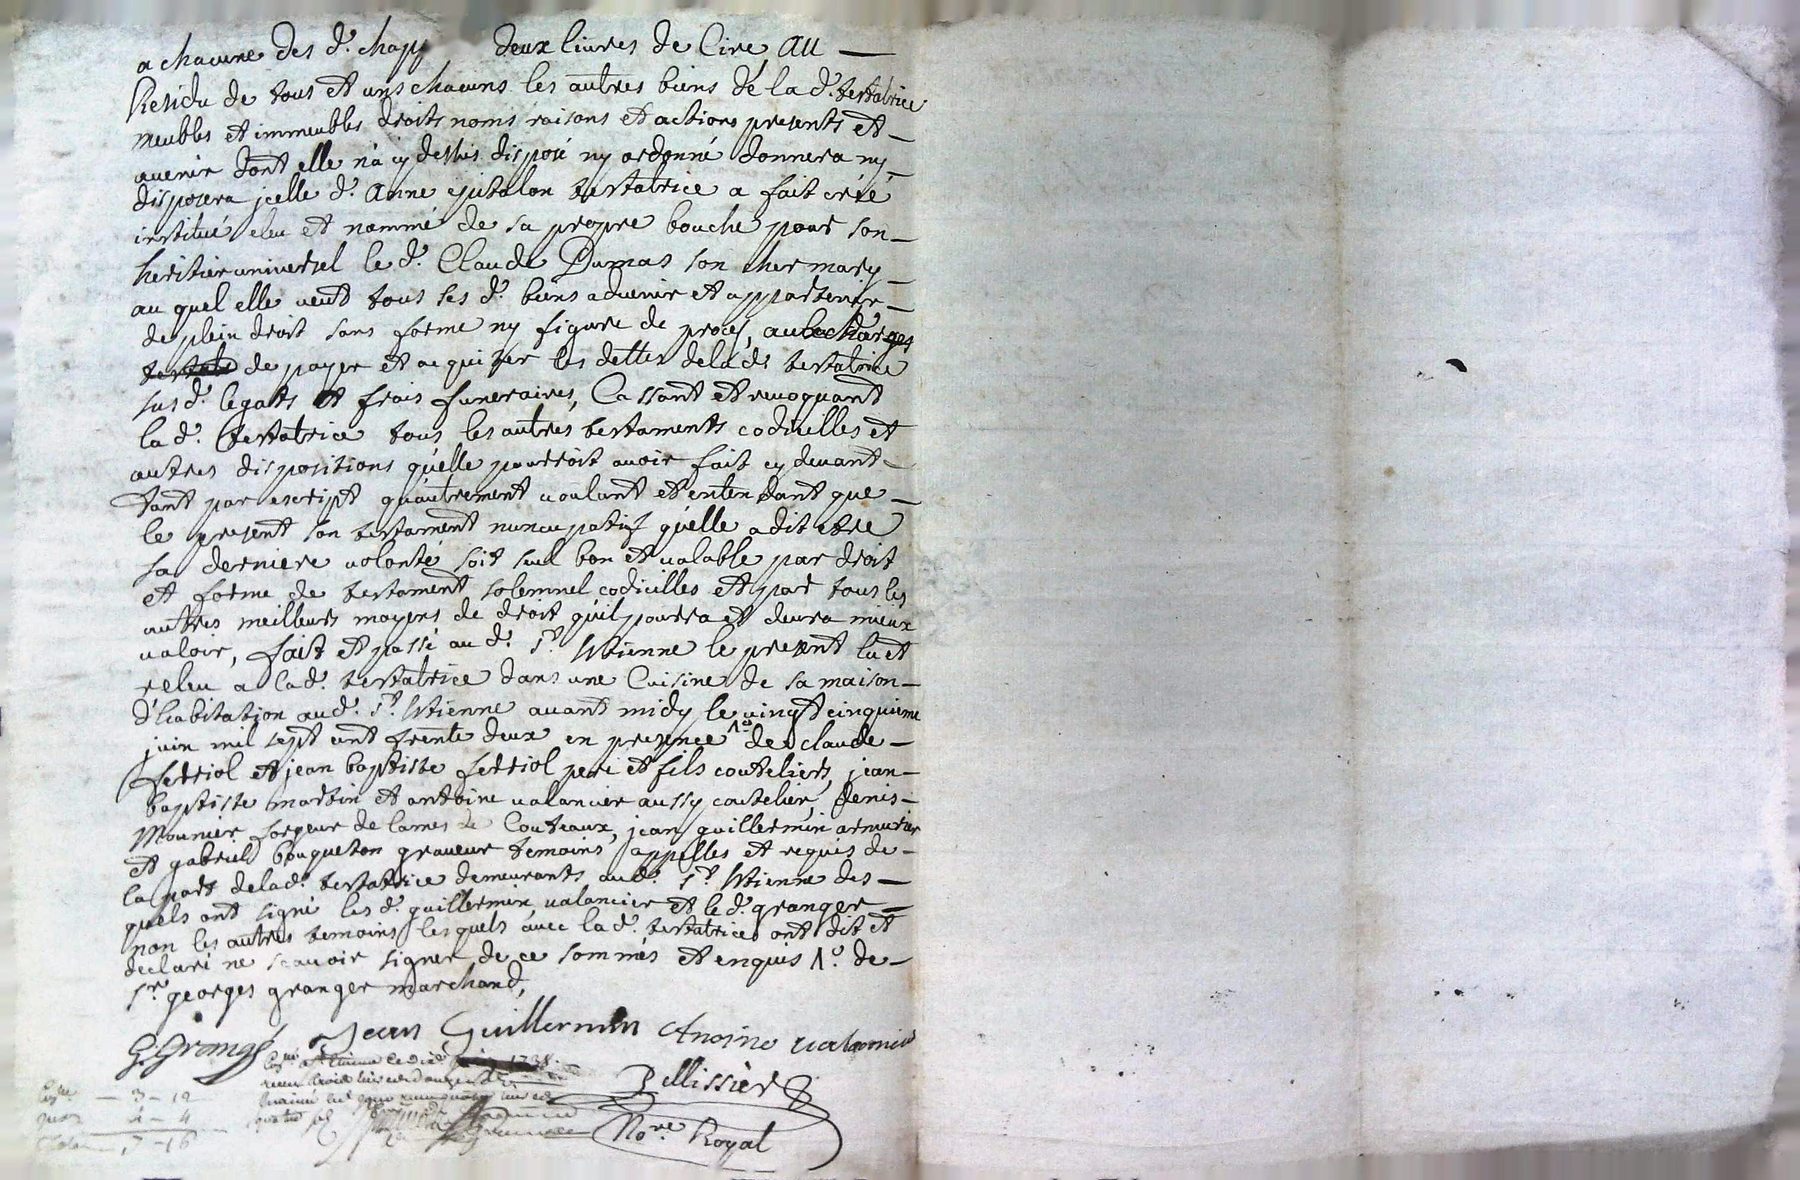 a chacune des d.^ chapp deux livres de Cire, au —
Residu de tous et uns chacuns les autres biens de la d.^ testatrice
meubles et immeubles droits noms raisons et actions presents et —
avenir dont elle n'a cy dessus disposé ny ordonné donnera ny —
disposera jcelle d.^ Anne testatrice a fait créé
institué eleu et nommé de sa propre bouche pour son —
heritier universel le d.^ Claude Dumas son cher mary —
au quel elle veut tous ses d.^ biens advenir et appartenir —
de plein droit sans forme ny figure de procés, aux charges
de payer et acquiter les dettes de la d.^ testatrice
sus d.^ legats et frais funeraires, Cassant et revoquant
la d.^ testatrice tous les autres testaments codicilles et
autres dispositions qu'elle pourroit avoir fait cy devant —
tant par escript qu'autrement voulant et entendant que —
le present son testament nuncupatif qu'elle a dit etre
sa derniere volonté soit seul bon et valable par droit
et forme de testament solemnel codicilles et par tous les
autres meilleurs moyens de droit qu'il pourra et devra mieux
valoir, fait et passé au d.^ S.^t Etienne le present lu et
releu a la d.^ testatrice dans une Cuisine de sa maison —
d'habitation au d.^ S.^t Etienne avant midy le vingt cinquieme
juin mil sept cent trente deux en presence de claude —
ferriol et jean baptiste ferriol pere et fils couteliers, jean —
baptiste martin et antoine valancier aussy coutelier, denis —
Mounier forgeur de lames de Couteaux, jean guillermin armurier
et gabriel bouqueton graveur temoins appellés et requis de —
la part de la d.^ testatrice demeurants au d.^ S.^t Etienne des —
quels ont signé les d.^ guillermin valancier et le d.^ granger —
non les autres temoins lesquels avec la d.^ testatrice ont dit et
declaré ne scavoir signer de ce sommés et enquis de —
S.^r georges granger marchand,
G. Grangé Jean Guillermin Antoine valancier
Pellissier
No.^re Royal
— 3 — 12
4 — 4
7 — 16